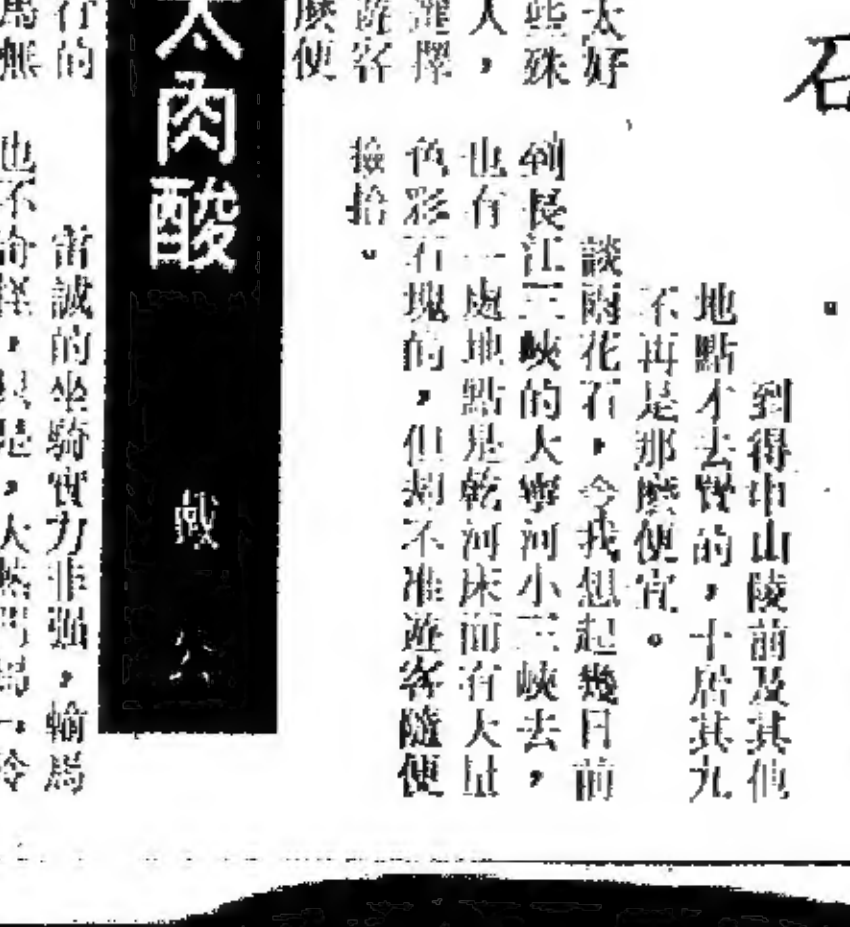 到得中山陵前及其他
地點才去買的，十居其九
不再是那麼便宜。
談雨花石，令我想起幾日前
到長江三峽的大寧河小三峽去，
也有一處地點是乾河床而有大量
色彩石塊的，但却不准遊客隨便
撿拾。
太好
些殊
人，
選擇
遊客
麼便
太肉酸
戴 公
行的
雷誠的坐騎實力非強，輸馬
馬無
也不奇怪，只是，大熱門馬